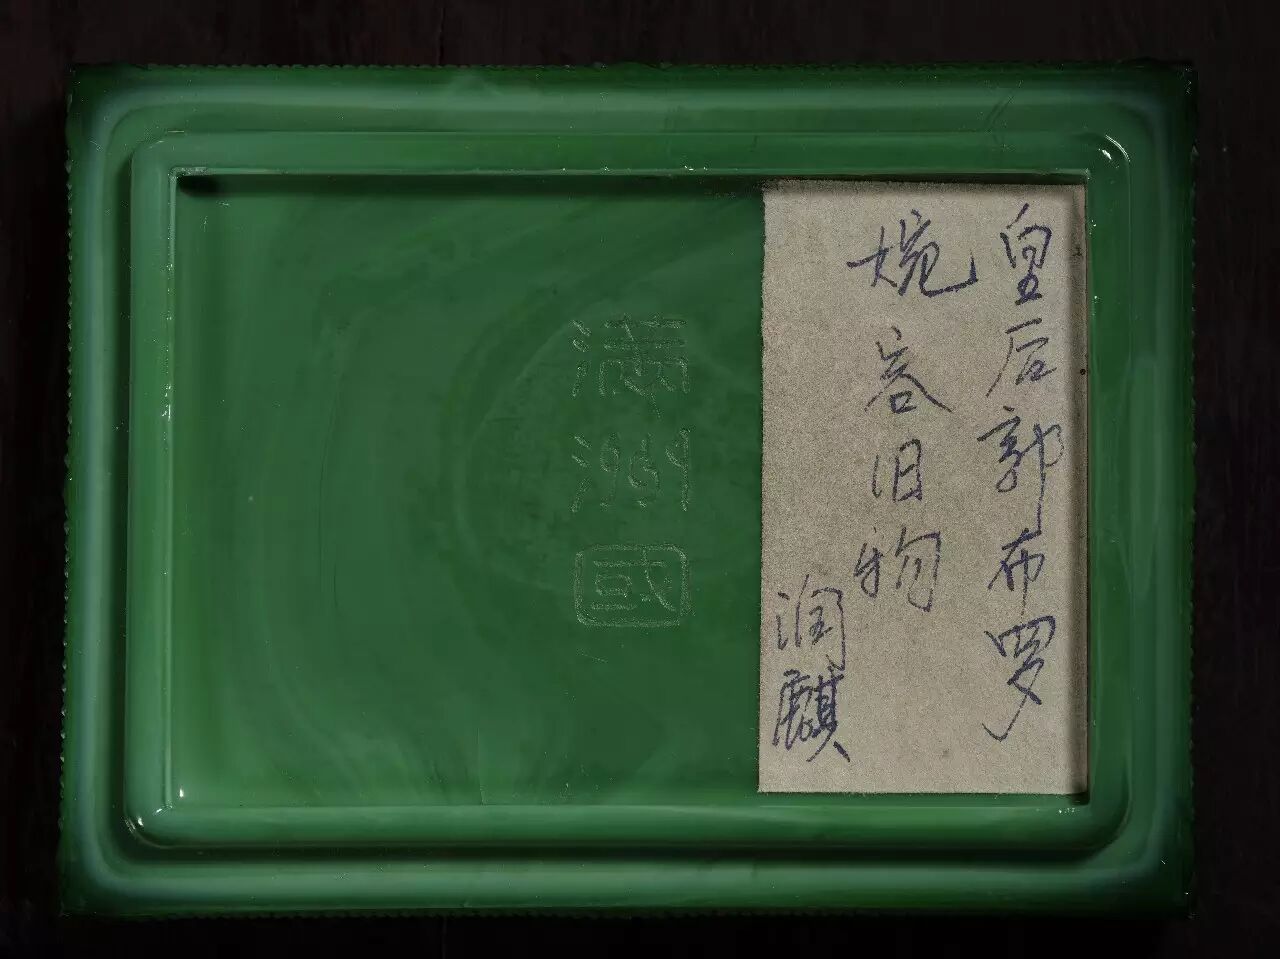 皇后郭布罗
婉容旧物
润麒
满洲國